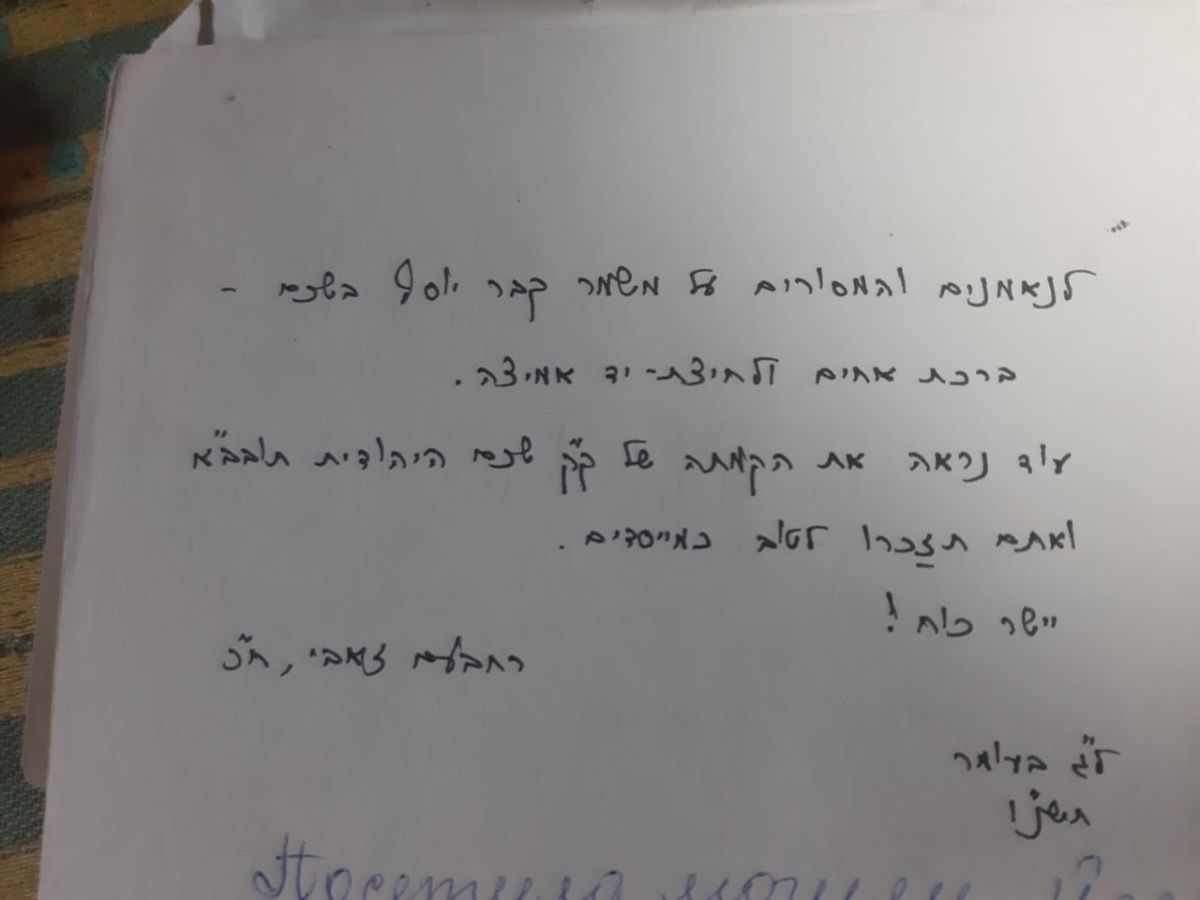 לנאמנים והמסורים על משמר קבר יוסף בשכם -
ברכת אחים ולחיצת-יד אמיצה.
עוד נראה את הקמתה של ק"ק שכם היהודית תובב"א
ואתם תזכרו לטוב כמייסדים.
יישר כוח!
רחבעם זאבי, ח"כ
ל"ג בעומר
תשנ"ו
Посетила могилу